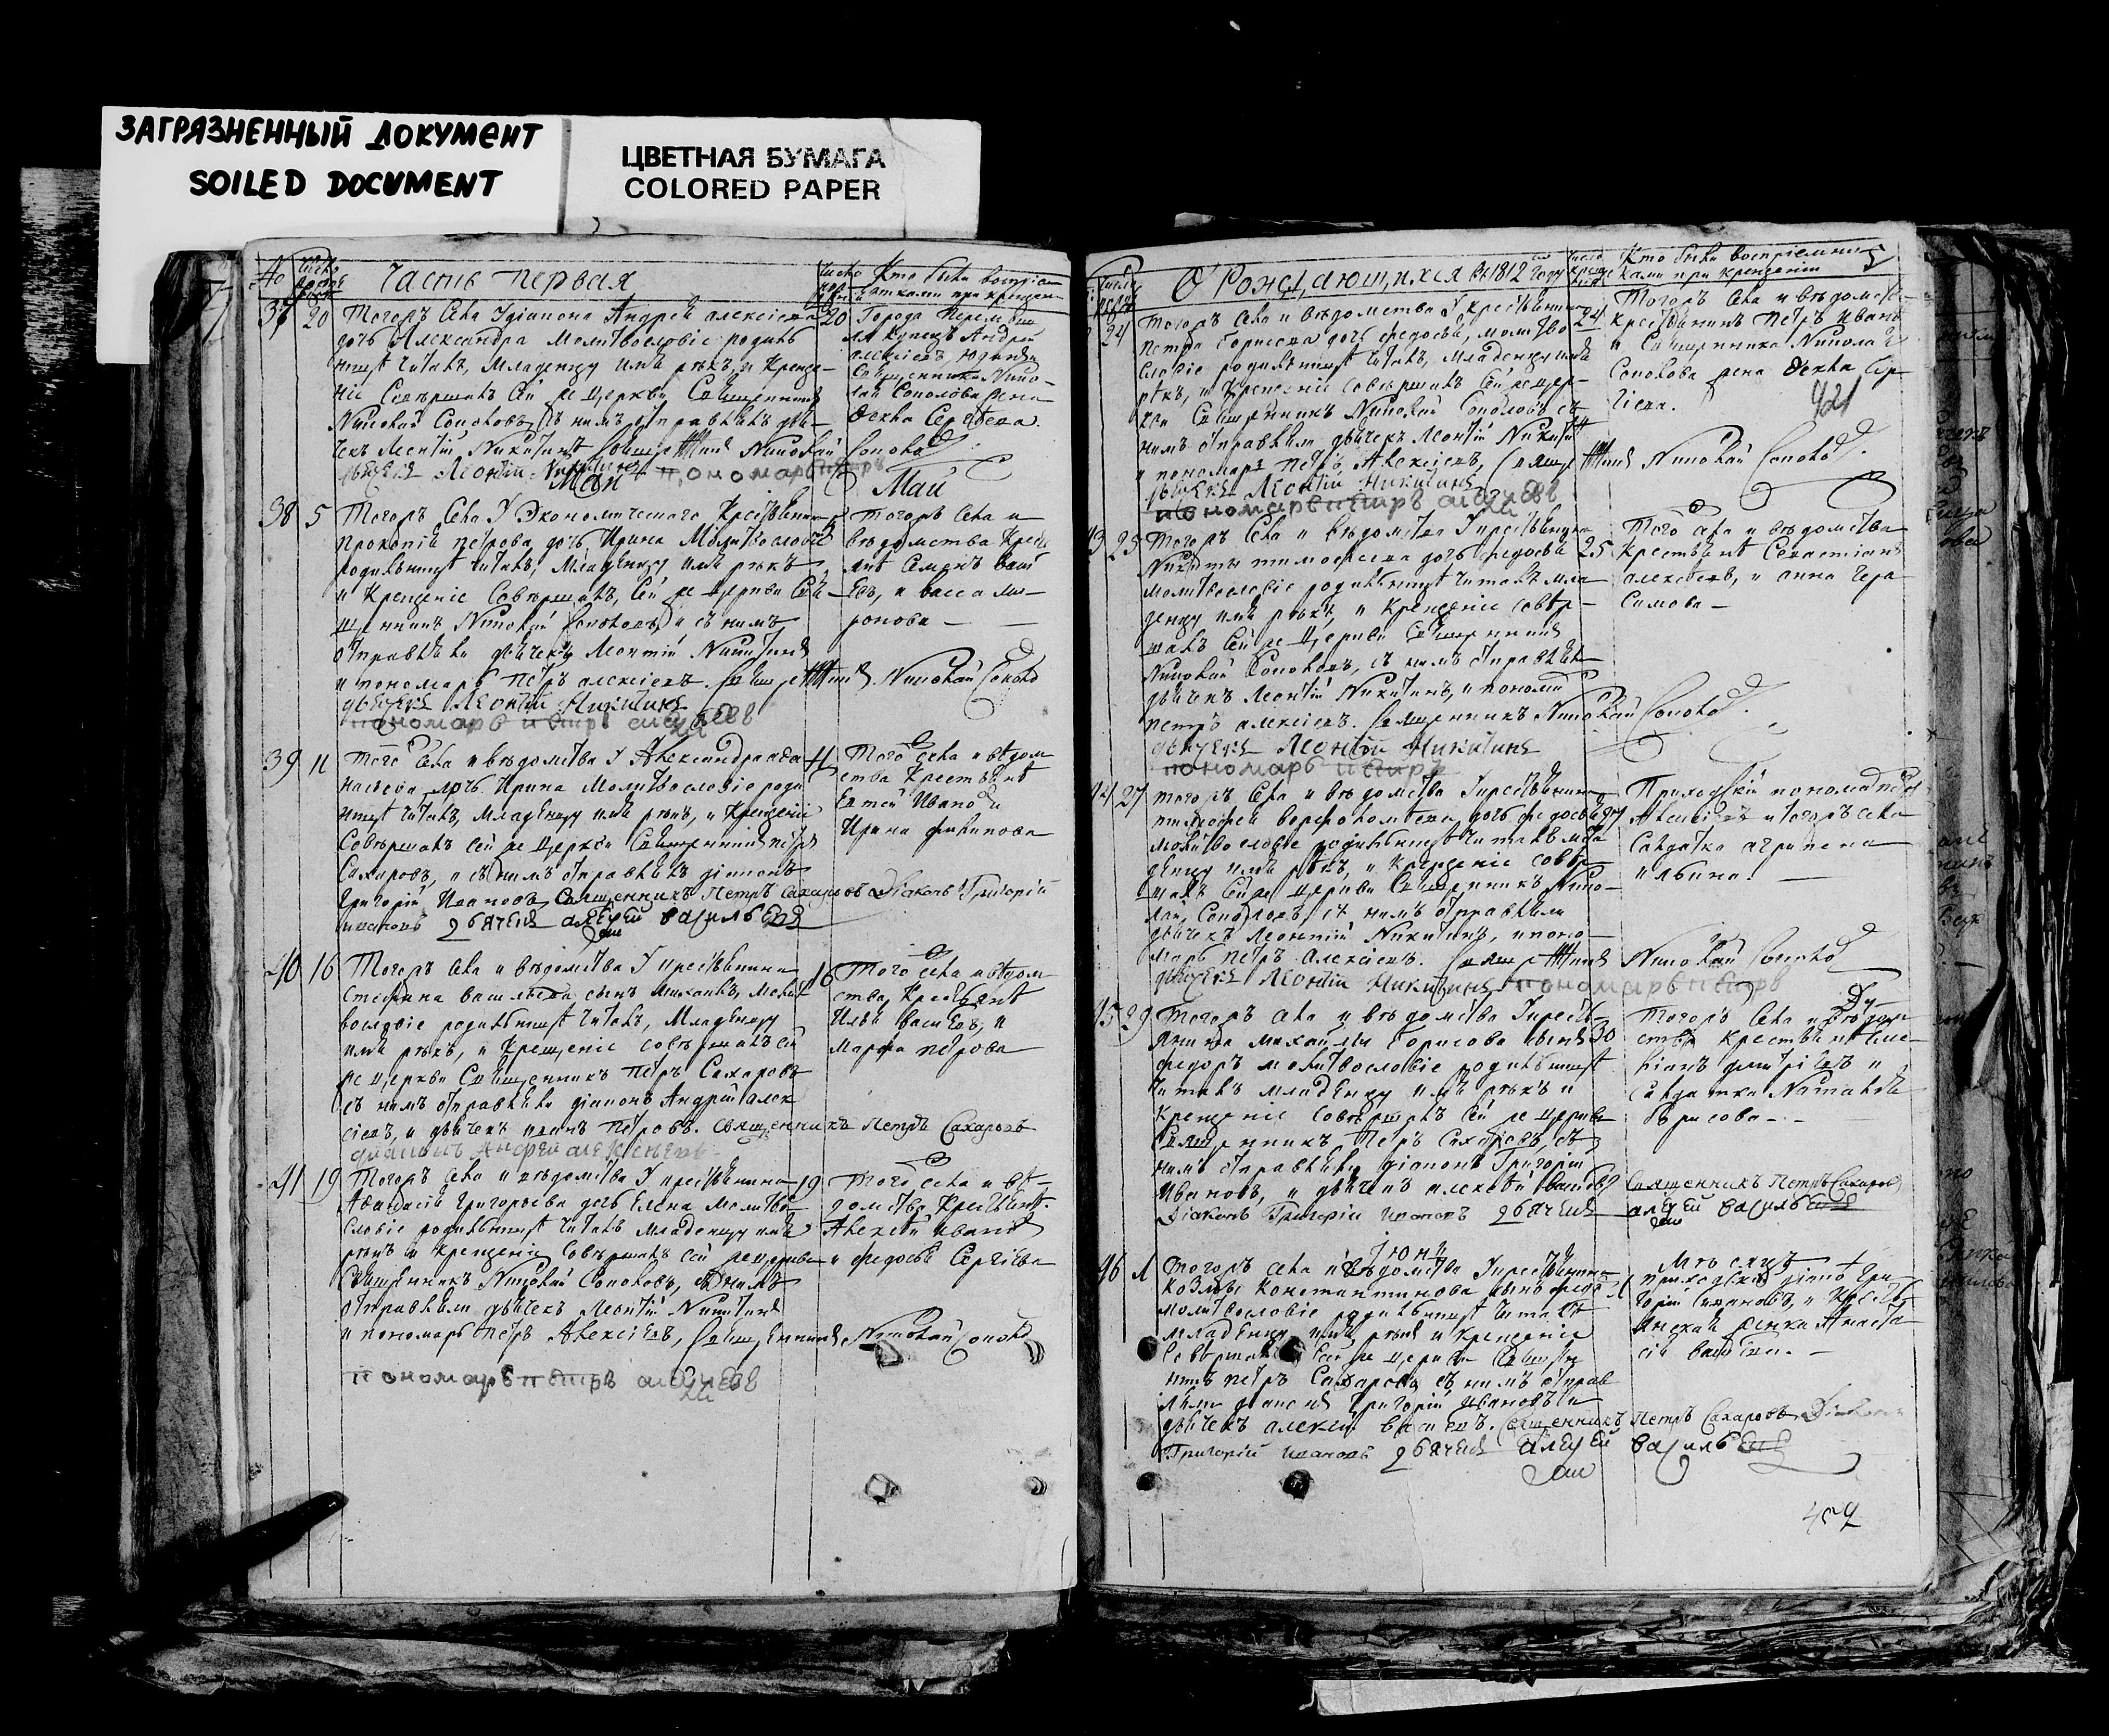 ЗАГРЯЗНЕННЫЙ ДОКУМЕНТ
SOILED DOCUMENT
ЦВЕТНАЯ БУМАГА
COLORED PAPER
Часть первая
Кто были воспріем
никами при крещен
37 20 Тогожъ села діакона Андрея алексіева 20
дочь Александра Молитвословіе родиль
ницѣ читалъ, Младенцу имя рѣкъ, и Креще
ніе Совершалъ сей же церкви Священникъ
Николай Соколовъ, съ нимъ отправлялъ дья
чекъ Леонтій Никитинъ Священникъ Николай Соколо
дьячекъ Леонтій Никитинъ пономарь петръ
Города Перемы
ля купецъ Андрей
алексіевъ
священника Нико
лая Соколова жена
Фекла Сергѣева.
Май
Май
38 5 Тогожъ Села У Экономическаго Крестьянина
прокопія петрова дочь Ирина Молитвословіе
родильницѣ читалъ, Младенцу имя рѣкъ
и Крещеніе Совершалъ, Сей же церкви Свя
щенникъ Николай Соколовъ, и съ нимъ
отправляли дьячекъ Леонтій Никитинъ
и пономарь Петръ алексіевъ. Священникъ Николай Соколо
дьячекъ Леонтій Никитинъ
пономарь петръ алексѣевъ
тогожъ села и
вѣдомства Крестья
нинъ Семенъ васил
евъ, и васса ми
ронова
39 11 Того села и вѣдомства У Александра афа 11
насьева дочь Ирина Молитвословіе роди
ницѣ читалъ, младенцу имя рѣкъ, и Крещеніе
Совершалъ сей же церкви Священникъ петръ
Сахаровъ, и съ нимъ отправлялъ діаконъ
Григорій Ивановъ Священникъ Петръ Сахаровъ Діаконъ Григорій
ивановъ дьячекъ алексей васильевъ
Того села и вѣдом
ства Крестьянинъ
Ивановъ и
Ирина филипова
40 16 Тогожъ села и вѣдомства У крестьянина 16
Стефана васильева сынъ михаилъ, молит
вословіе родильницѣ читалъ, Младенцу
имя рѣкъ, и Крещеніе совершалъ сей
же церкви Священникъ петръ Сахаровъ
съ нимъ отправляли діаконъ Андрей алек
сіевъ, и дьячекъ иванъ Петровъ. священникъ Петръ Сахаровъ
диаконъ Андрей алексѣевъ
Того села и вѣдом
ства, Крестьянинъ
Илья васильевъ, и
марфа петрова
41 19 Тогожъ села и вѣдомства У крестьянина 19
Афанасія Григорьева дочь Елена молитво
словіе родильницѣ читалъ младенцу имя
рѣкъ и крещеніе совершалъ сей же церкви
Священникъ Николай Соколовъ, съ нимъ
отправляли дьячекъ Леонтій Никитинъ
и пономарь петръ Алексіевъ, Священникъ Николай Соколо
пономарь петръ алексѣевъ
Того села и вѣ
домства Крестьянинъ
Алексѣй иванов
и федосья Сергѣева
О Рождающихся въ 1812 году
Кто были воспріемни
ками при крещеніи
24 Тогожъ села и вѣдомства У крестьянина 24
петра борисова дочь федосья, молитво
словіе родильницѣ читалъ, младенцу имя
рѣкъ, и крещеніе совершалъ сей же цер
кви Священникъ Николай Соколовъ съ
нимъ отправляли дьячекъ Леонтій Никитинъ
и пономарь петръ Алексіевъ, Священникъ Николай Соколо
дьячекъ Леонтій Никитинъ
пономарь петръ алексѣевъ
Тогожъ села и вѣдомства
крестьянинъ петръ ивано
и Священника Никола
Соколова жена Фекла Сер
гіева.
421
43 25 Тогожъ села и вѣдомства У крестьянина
Никиты тимофеева дочь федосья 25
молитвословіе родильницѣ читалъ мла
денцу имя рѣкъ, и Крещеніе совер
шалъ сей же церкви Священникъ
Николай Соколовъ, съ нимъ отправляли
дьячекъ Леонтій Никитинъ, и понома
петръ алексіевъ. Священникъ Николай Соколо
дьячекъ Леонтій Никитинъ
пономарь петръ
Того села и вѣдомства
Крестьянинъ Севастіанъ
алексѣевъ, и анна гера
симова
44 27 тогожъ села и вѣдомства У крестьянина
тимофея дочь федосья 27
молитвословіе родильницѣ читалъ мла
денцу имя рѣкъ, и Крещеніе совер
шалъ сей же церкви Священникъ Нико
лай Соколовъ, съ нимъ отправляли
дьячекъ Леонтій Никитинъ, и поно
марь петръ алексіевъ. Священникъ Николай Соколо
дьячекъ Леонтій Никитинъ пономарь петръ
Приходскій пономарь петръ
Алексіевъ и тогожъ села
Салдатка агрипена
ильина.
45 29 Тогожъ села и вѣдомства У кресть
янина михаилы борисова сынъ 30
федоръ молитвословіе родильницѣ
читалъ младенцу имя рѣкъ и
крещеніе совершалъ сей же церкви
Священникъ Петръ Сахаровъ, съ
нимъ отправляли діаконъ Григорій
ивановъ, и дьячекъ алексѣй васильев Священникъ Петръ Сахаров
Діаконъ Григорій ивановъ дьячекъ алексей васильевъ
Тогожъ села и вѣдом
ства крестьянинъ
димитріевъ и
салдатка Наталья
борисова
Іюнь
46 1 Тогожъ села и вѣдомства У крестьянина
козмы константинова сынъ 1
молитвословіе родильницѣ читалъ
младенцу имя рѣкъ и крещеніе
совершалъ сей же церкви Священ
никъ петръ Сахаровъ съ нимъ отправ
ляли діаконъ Григорій ивановъ и
дьячекъ алексѣй васильевъ. священникъ Петръ Сахаровъ Діаконъ
Григорій ивановъ дьячекъ алексей васильевъ
Мѣсяцъ
приходскій діако Гри
горій ивановъ, и крестья
янская женка Анаста
сія васильева.